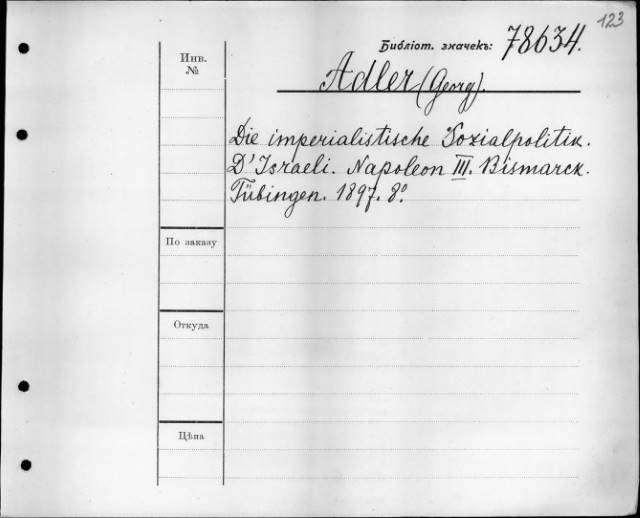 123
Библіот. значекъ: 78634.
Инв.
№
Adler (Georg).
Die imperialistische Sozialpolitik.
D'Israeli. Napoleon III. Bismarck.
Tübingen. 1897. 8º
По заказу
Откуда
Цѣна